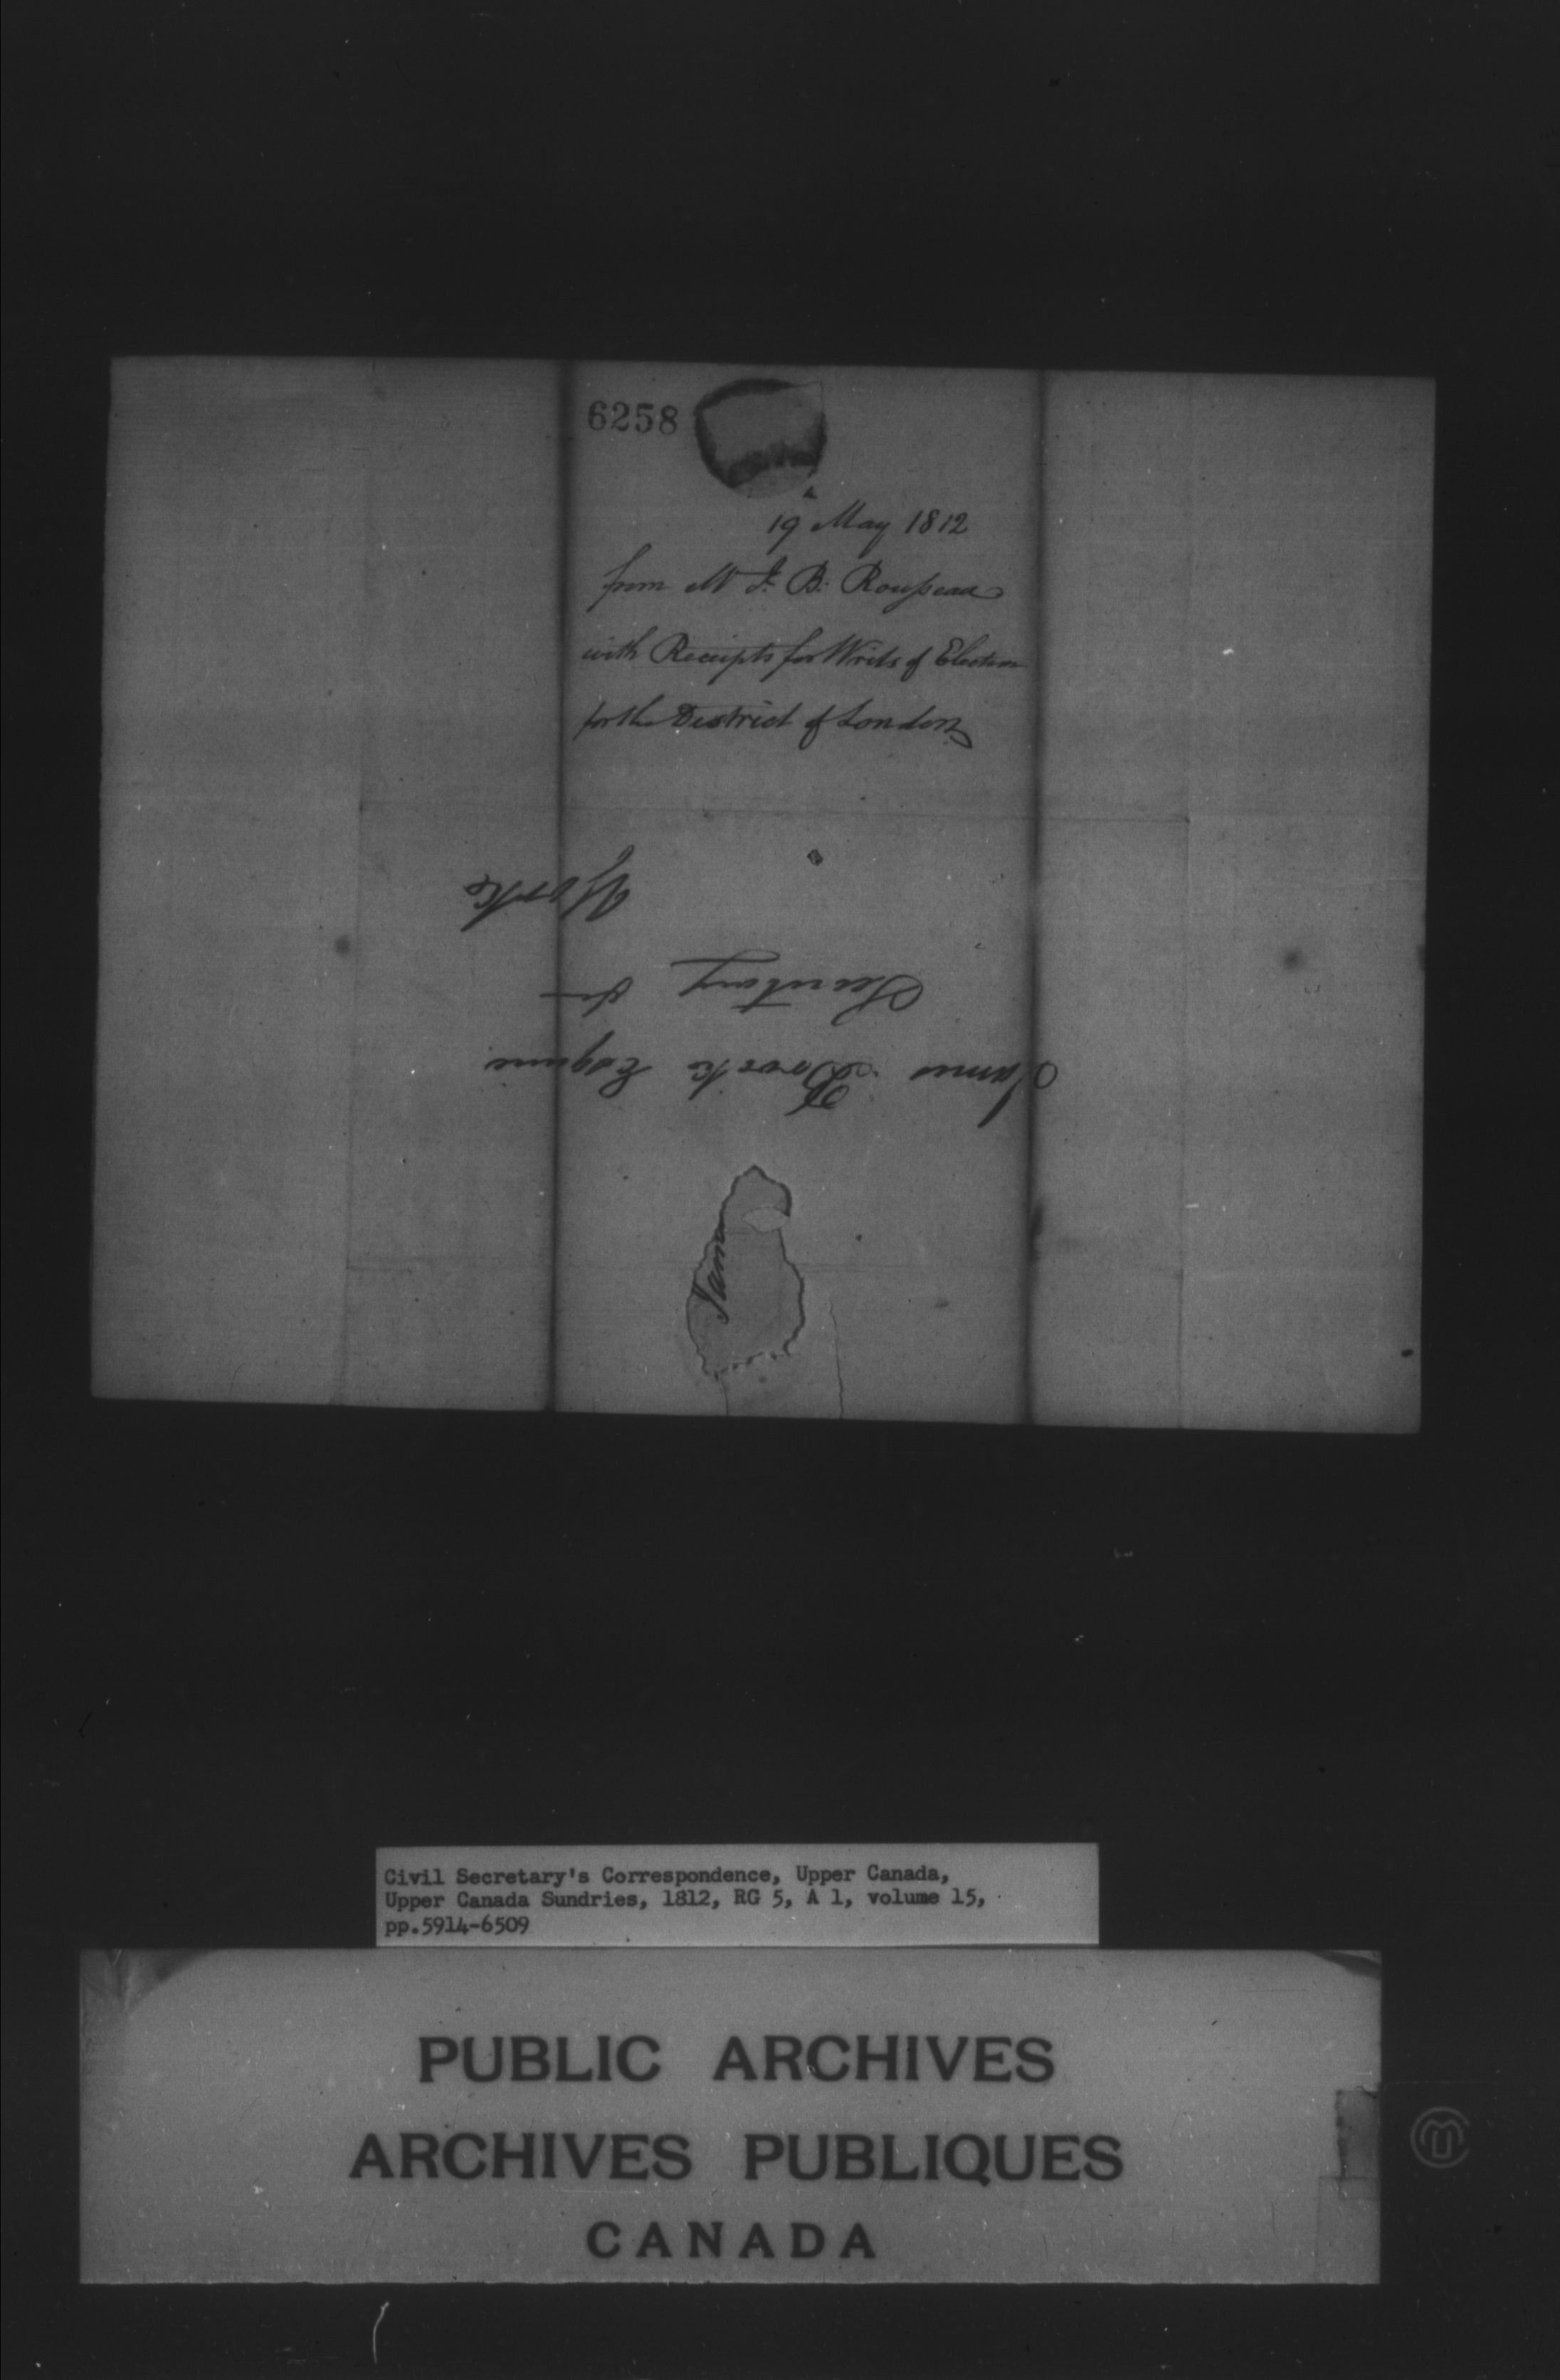 6258
19th May 1812
from Mr J. B. Rousseau
with Receipts for Writs of Election
for the District of London
James Brock Esquire
Secretary &c
York
Jam
Civil Secretary's Correspondence, Upper Canada,
Upper Canada Sundries, 1812, RG 5, A 1, volume 15,
pp.5914-6509
PUBLIC ARCHIVES
ARCHIVES PUBLIQUES
CANADA